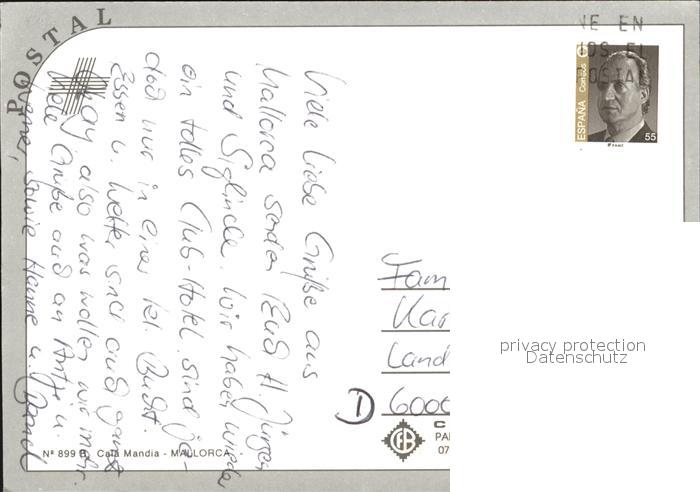 POSTAL
VE EN
IOS EL
POSTAL
ESPAÑA Correos
55
Viele liebe Grüße aus
Mallorca senden Euch H. Jürgen
und Siglinde. Wir haben wieder
ein tolles Club-Hotel sind je-
doch nur in einer kl. Bucht.
Essen u. Wetter sind auch ganz
okay, also was wollen wir mehr.
Viele Grüße auch an Antje u.
Werner, sowie Hanne u.
Fam
Kar
Land
D 6000
privacy protection
Datenschutz
C
PA
07
Nº 899 B. Cala Mandia - MALLORCA